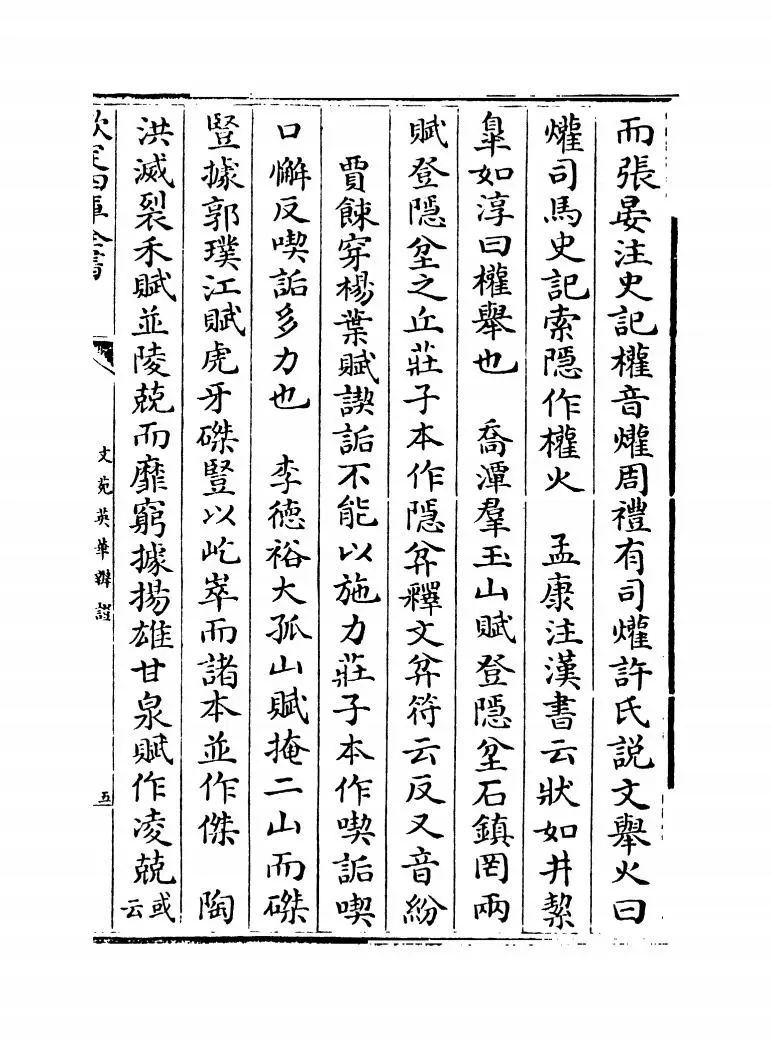 而張晏注史記權音爟周禮有司爟許氏説文舉火曰
爟司馬史記索隱作權火　孟康注漢書云狀如井絜
臯如淳曰權舉也　喬潭羣玉山賦登隱坌石鎮罔兩
賦登隱坌之丘莊子本作隱弅釋文弅符云反又音紛
賈餗穿楊葉賦謑詬不能以施力莊子本作喫詬喫
口懈反喫詬多力也　李德裕大孤山賦掩二山而磔
豎據郭璞江賦虎牙磔豎以屹崒而諸本並作傑　陶
洪滅裂禾賦並陵兢而靡窮據揚雄甘泉賦作凌兢或云
欽定四庫全書
文苑英華辯證
五